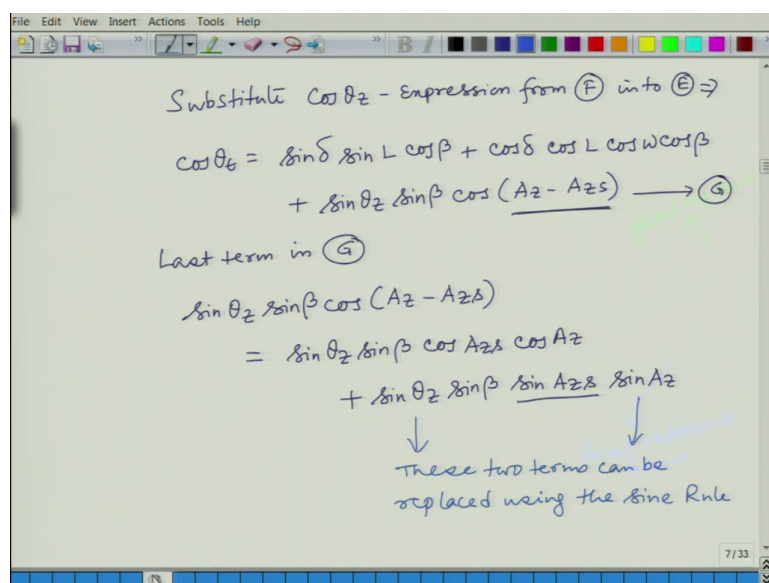 File Edit View Insert Actions Tools Help
B I
Substitute Cosθz - Expression from (F) into (E) ⇒
cosθt = sinδ sin L cosβ + cosδ cos L cosω cosβ
+ sinθz sinβ cos (Az - Azs) → (G)
Last term in (G)
sinθz sinβ cos (Az - Azs)
= sinθz sinβ cos Azs cos Az
+ sinθz sinβ sin Azs sin Az
These two terms can be
replaced using the Sine Rule
7/33